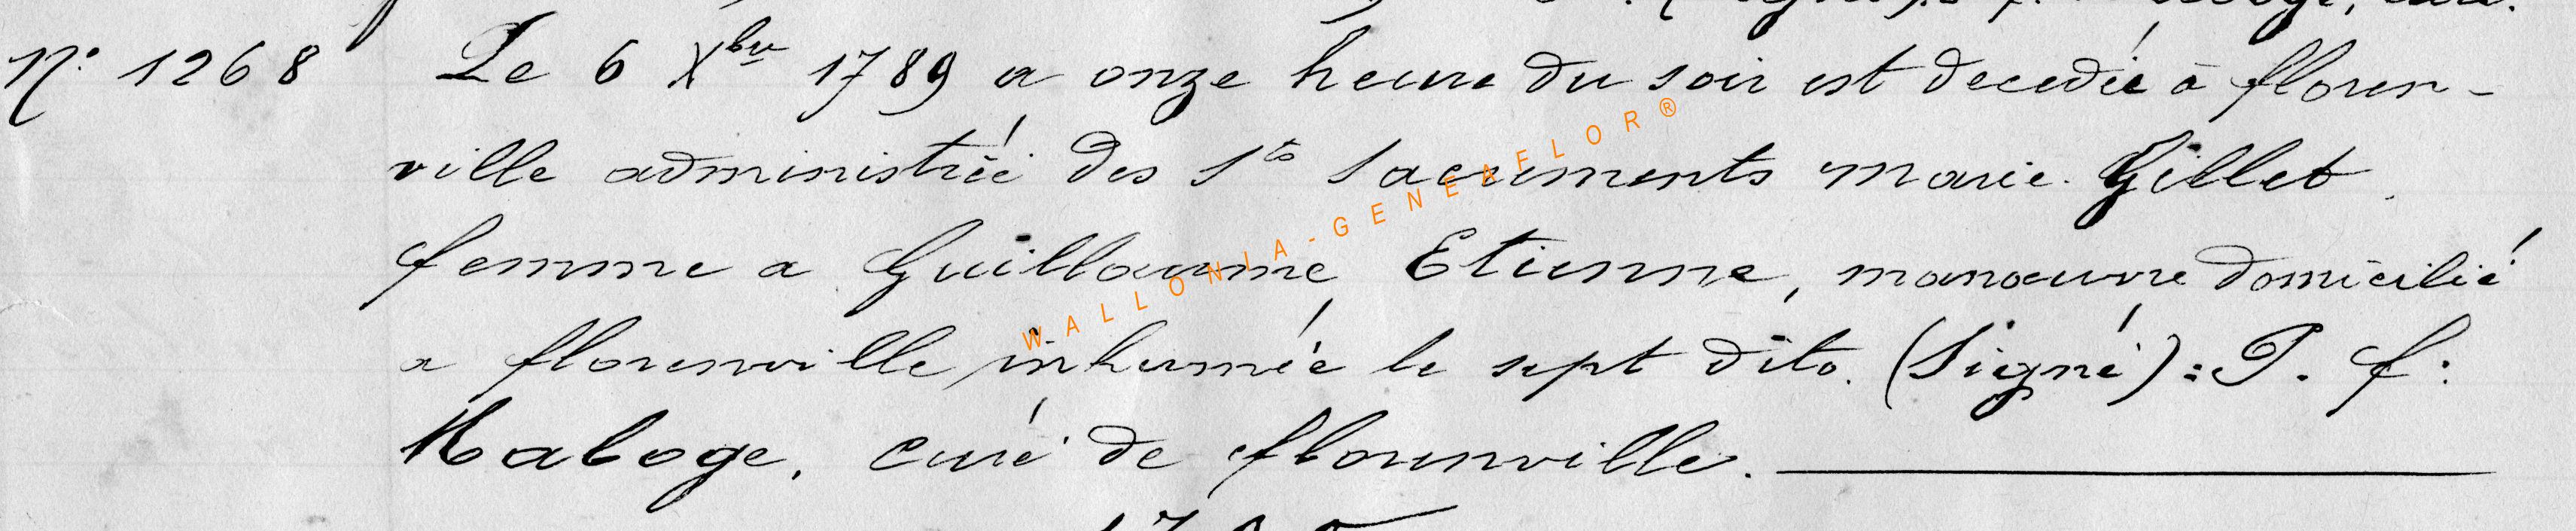 N° 1268 Le 6 Xbre 1789 a onze heure du soir est decedée à floren-
ville administrée des Sts Sacrements marie Gillet
femme a Guillaume Etienne, manœuvre domicilié
a florenville inhumée le sept dito. (Signé): P. f:
Maboge, curé de florenville.
WALLONIA-GENEAFLOR®